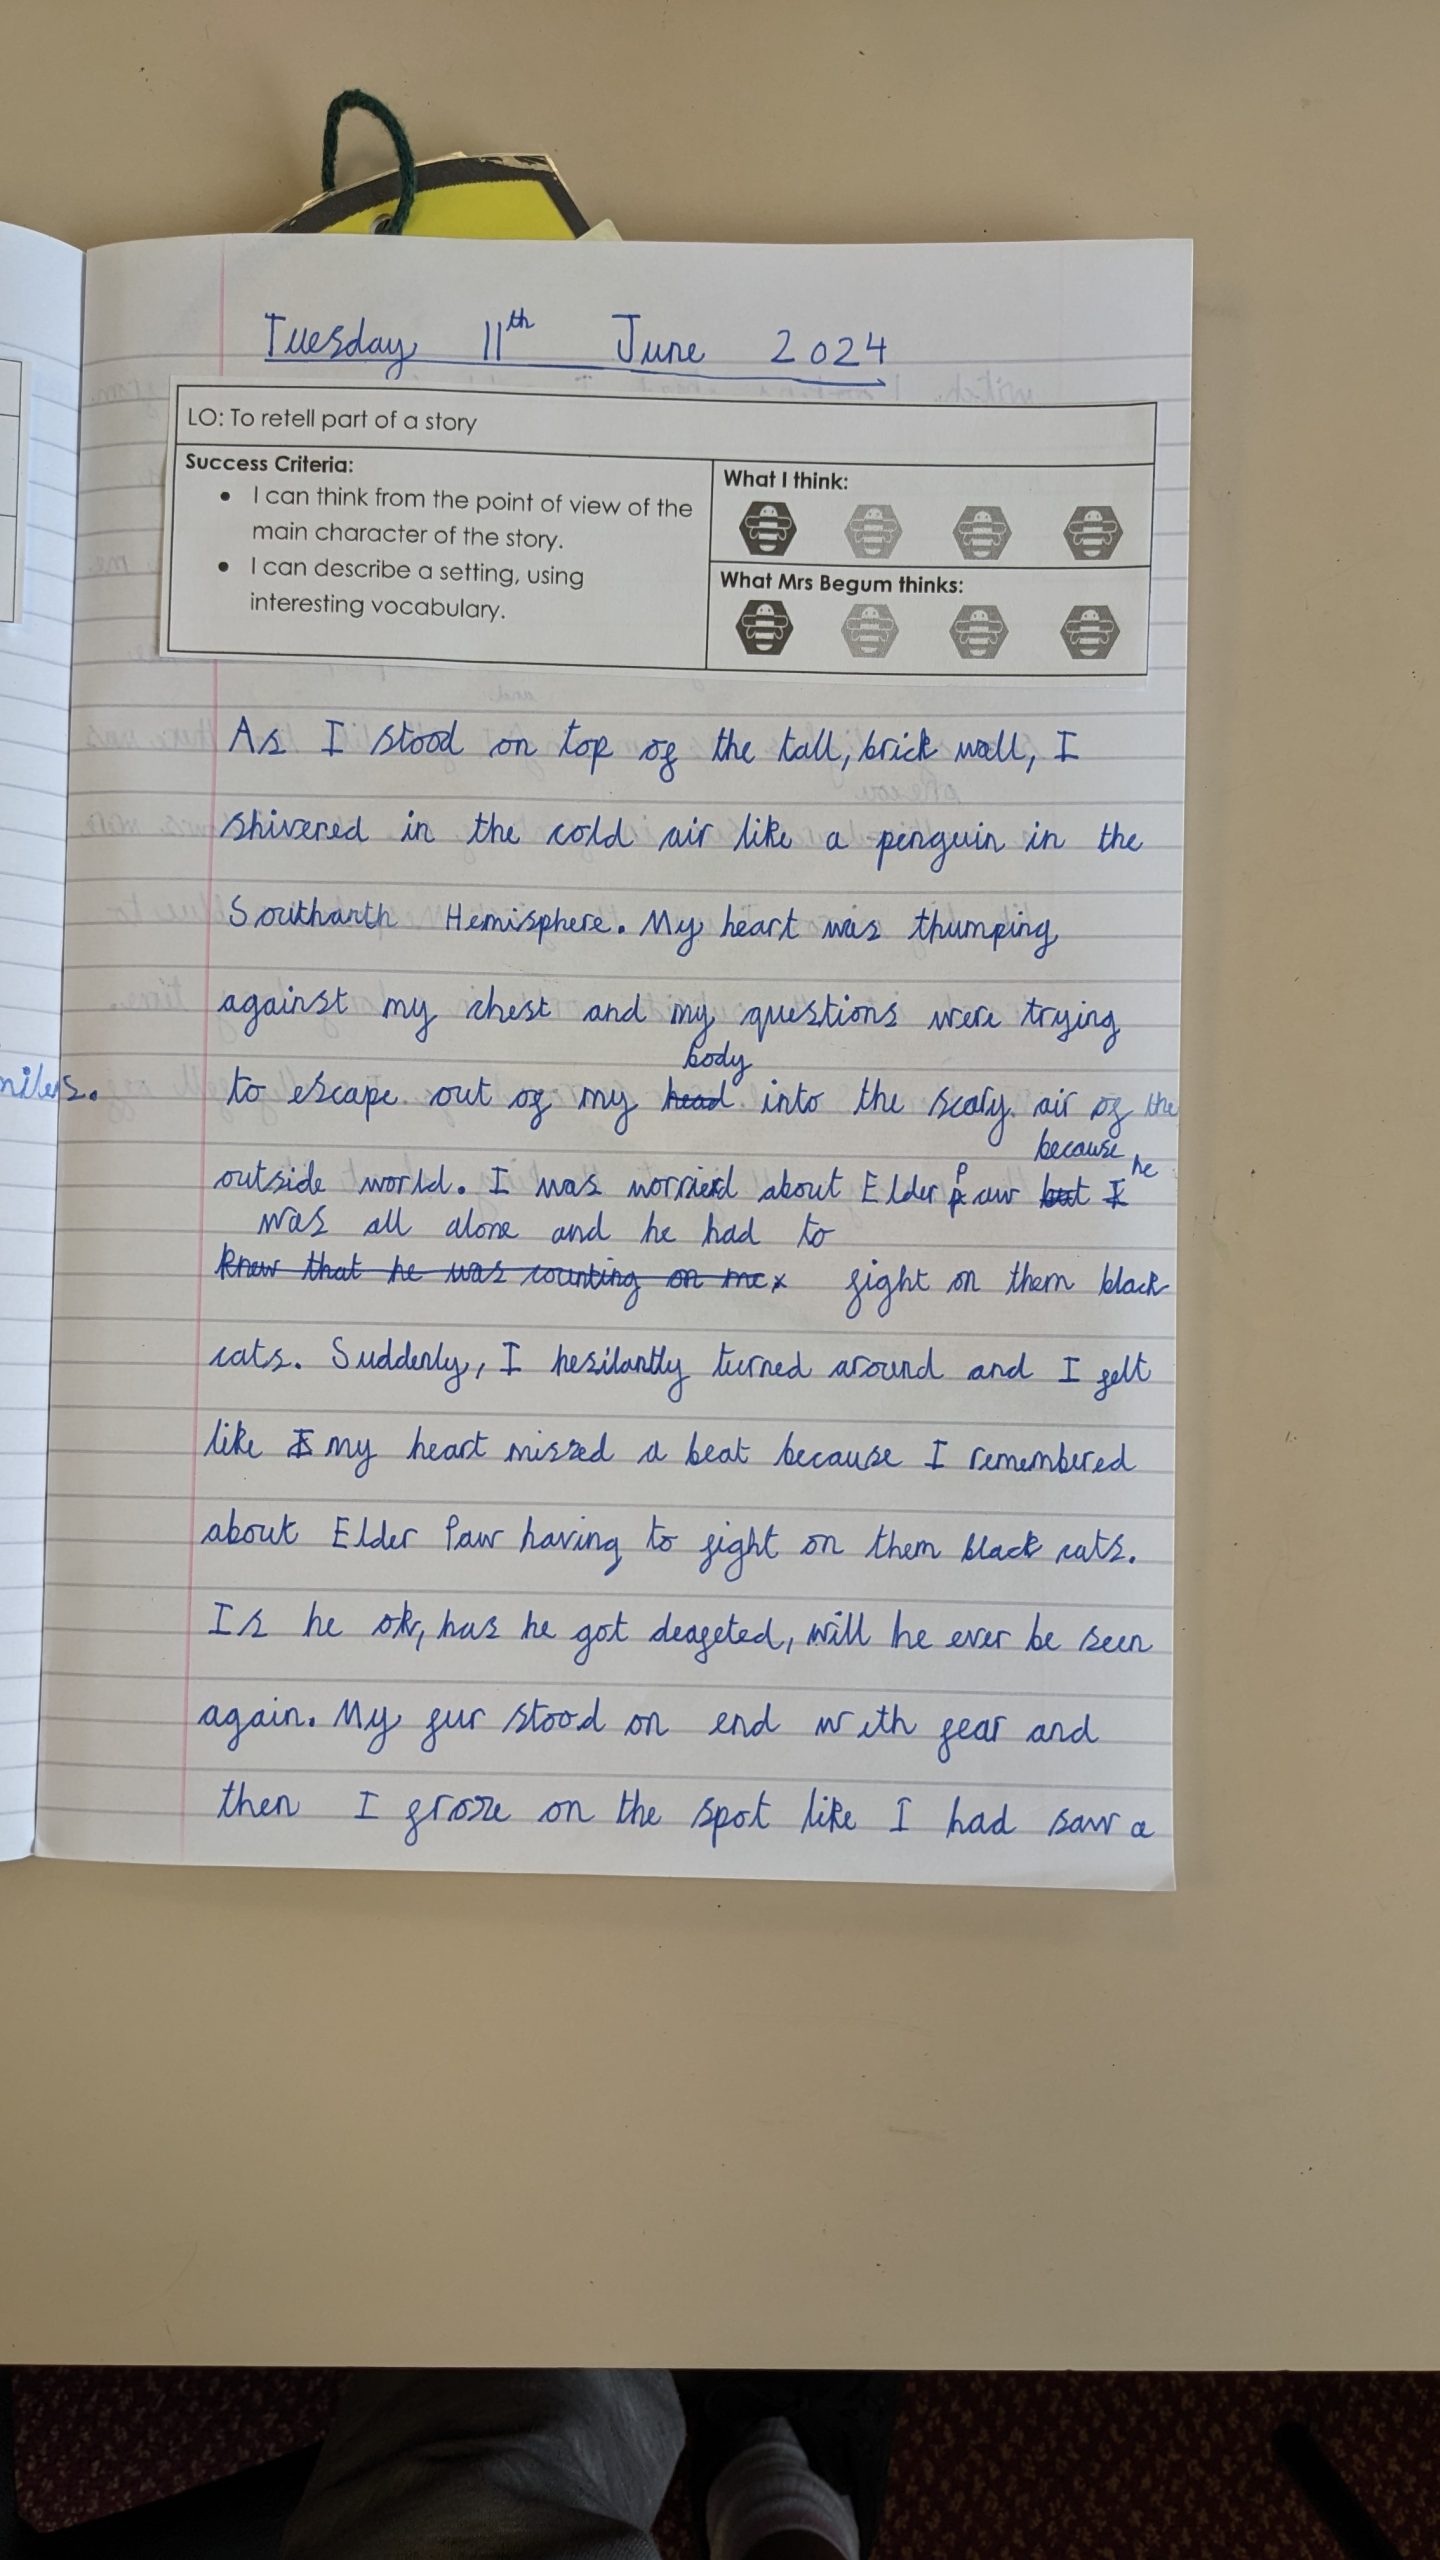 Tuesday 11th June 2024
LO: To retell part of a story
Success Criteria:
• I can think from the point of view of the
main character of the story.
• I can describe a setting, using
interesting vocabulary.
What I think:
What Mrs Begum thinks:
As I stood on top of the tall, brick wall, I
shivered in the cold air like a penguin in the
Southanth Hemisphere. My heart was thumping
against my chest and my questions were trying
body
to escape out of my head into the scary air of the
because he
outside world. I was worried about Elder Paw but I
was all alone and he had to
knew that he was counting on me x fight on them black
cats. Suddenly, I hesilantly turned around and I felt
like I my heart missed a beat because I remembered
about Elder Paw having to fight on them black cats.
Is he ok, has he got deafeted, will he ever be seen
again. My fur stood on end with fear and
then I froze on the spot like I had saw a
miles.